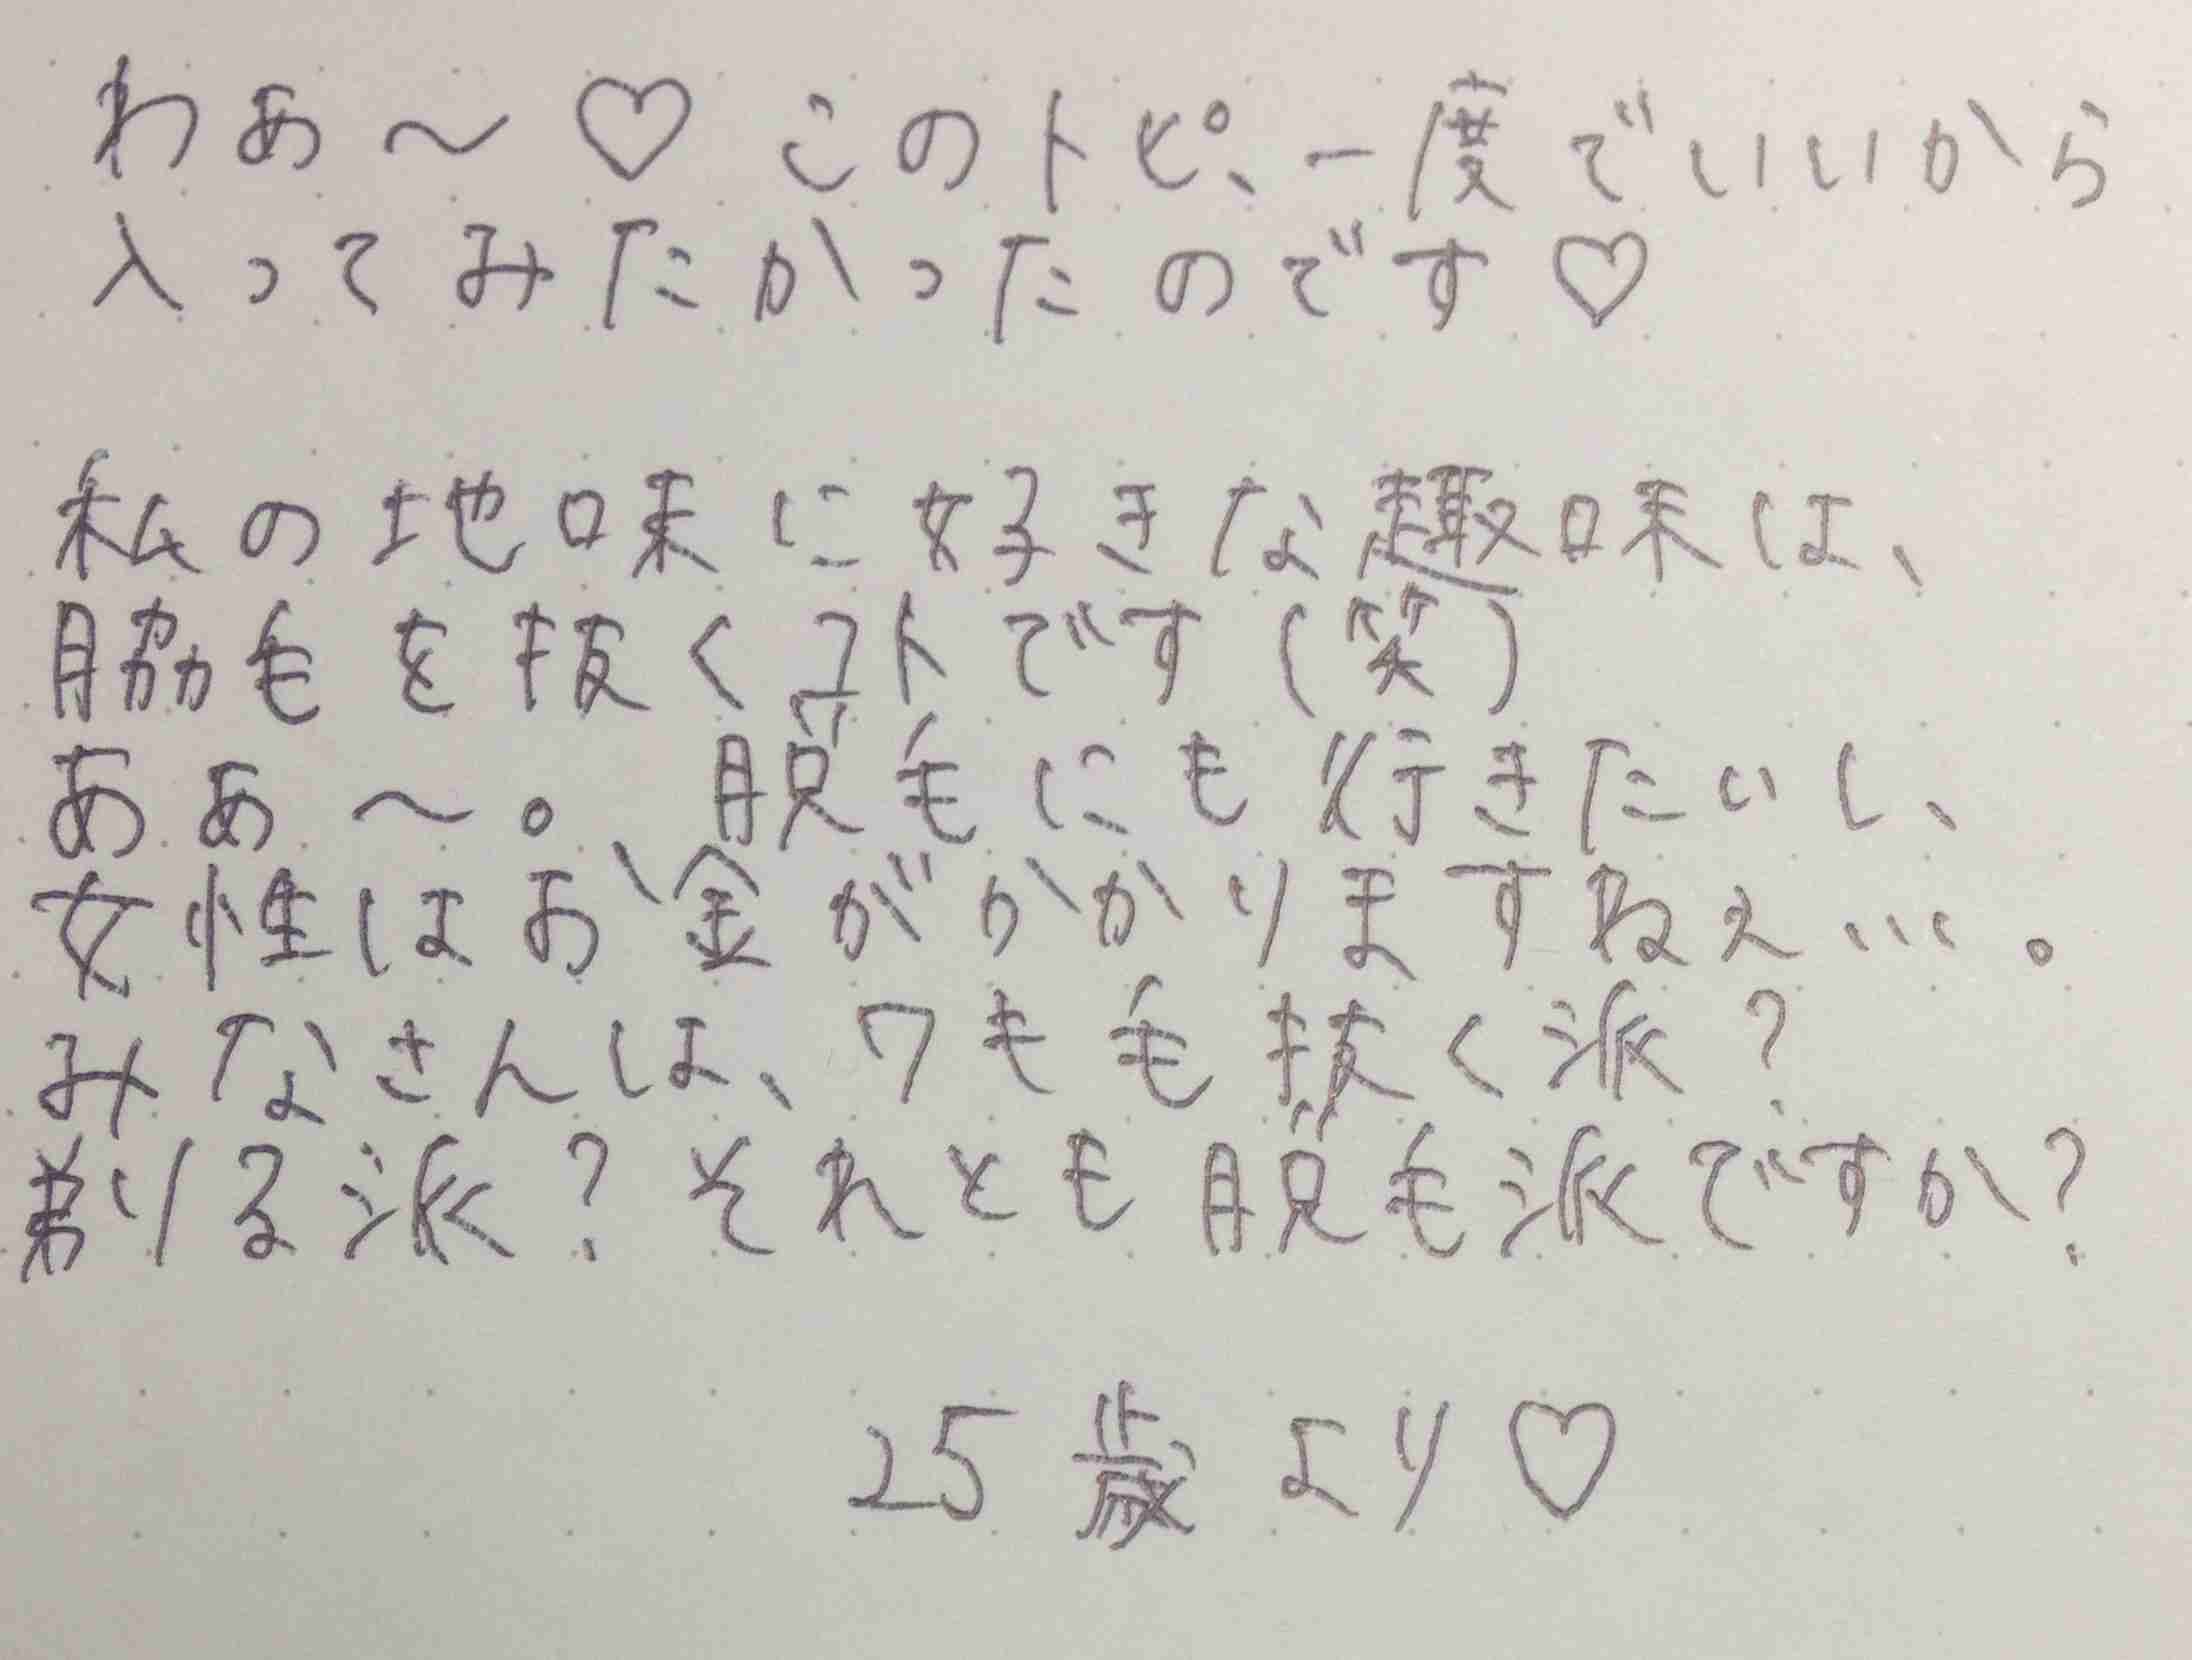 わぁ〜♡このトピ、一度でいいから
入ってみたかったのです♡
私の地味に好きな趣味は、
脇毛を抜くコトです(笑)
あぁ〜。脱毛にも行きたいし、
女性はお金がかかりますねぇ…。
みなさんは、ワキ毛抜く派?
剃る派?それとも脱毛派ですか?
25歳より♡